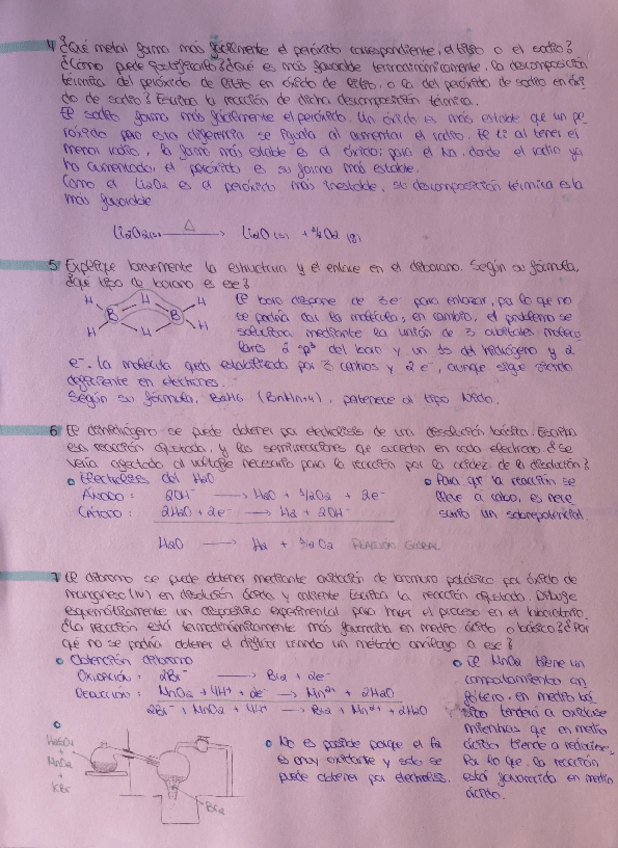 4 ¿Qué metal forma más fácilmente el peróxido correspondiente, el litio o el sodio?
¿Cómo puede justificarlo? ¿Qué es más favorable termodinámicamente, la descomposición
térmica del peróxido de litio en óxido de litio, o la del peróxido de sodio en óxi
do de sodio? Escriba la reacción de dicha descomposición térmica.
El sodio forma más fácilmente el peróxido. Un óxido es más estable que un pe
róxido pero esta diferencia se iguala al aumentar el radio. El Li al tener el
menor radio, la forma más estable es el óxido; para el Na, donde el radio ya
ha aumentado, el peróxido es su forma más estable.
Como el Li2O2 es el peróxido más inestable, su descomposición térmica esta
mas favorable
Li2O2(s) —Δ→ Li2O (s) + 1/2O2 (g)
5 Explique brevemente la estructura y el enlace en el diborano. Según su fórmula,
¿qué tipo de borano es ese?
H H H
B B
H H H
El boro dispone de 3e- para enlazar, por lo que no
se podría dar la molécula; en cambio, el problema se
soluciona mediante la unión de 3 orbitales molecu
lares 2 sp³ del boro y un 1s del hidrógeno y 2
e-. La molécula queda estabilizada por 3 centros y 2 e-, aunque sigue siendo
deficiente en electrones.
Según su fórmula, B2H6 (BnHn+4), pertenece al tipo Nido.
6 El dihidrógeno se puede obtener por electrolisis de una disolución básica. Escriba
esa reacción ajustada, y las semirreacciones que suceden en cada electrodo. ¿Se
vería afectado el voltaje necesario para la reacción por la acidez de la disolución?
Electrolisis del H2O
ÁNODO: 2OH- → H2O + 1/2O2 + 2e-
CÁTODO: 2H2O + 2e- → H2 + 2OH-
H2O → H2 + 1/2O2 REACCIÓN GLOBAL
Para que la reacción se
lleve a cabo, es nece
sario un sobrepotencial.
7 El dibromo se puede obtener mediante oxidación de bromuro potásico por óxido de
manganeso (IV) en disolución ácida y caliente. Escriba la reacción ajustada. Dibuje
esquemáticamente un dispositivo experimental para hacer el proceso en el laboratorio.
¿La reacción está termodinámicamente más favorecida en medio ácido o básico? ¿Por
qué no se podría obtener el diflúor usando un método análogo a ese?
Obtención dibromo
OXIDACIÓN: 2Br- → Br2 + 2e-
REDUCCIÓN: MnO2 + 4H+ + 2e- → Mn2+ + 2H2O
2Br- + MnO2 + 4H+ → Br2 + Mn2+ + 2H2O
El MnO2 tiene un
comportamiento an
fótero, en medio bá
sico tenderá a oxidarse
mientras que en medio
ácido tiende a reducirse.
Por lo que, la reacción
está favorecida en medio
ácido.
H2SO4
+
MnO2
+
KBr
Br2
No es posible porque el F2
es muy oxidante y solo se
puede obtener por electrolisis.